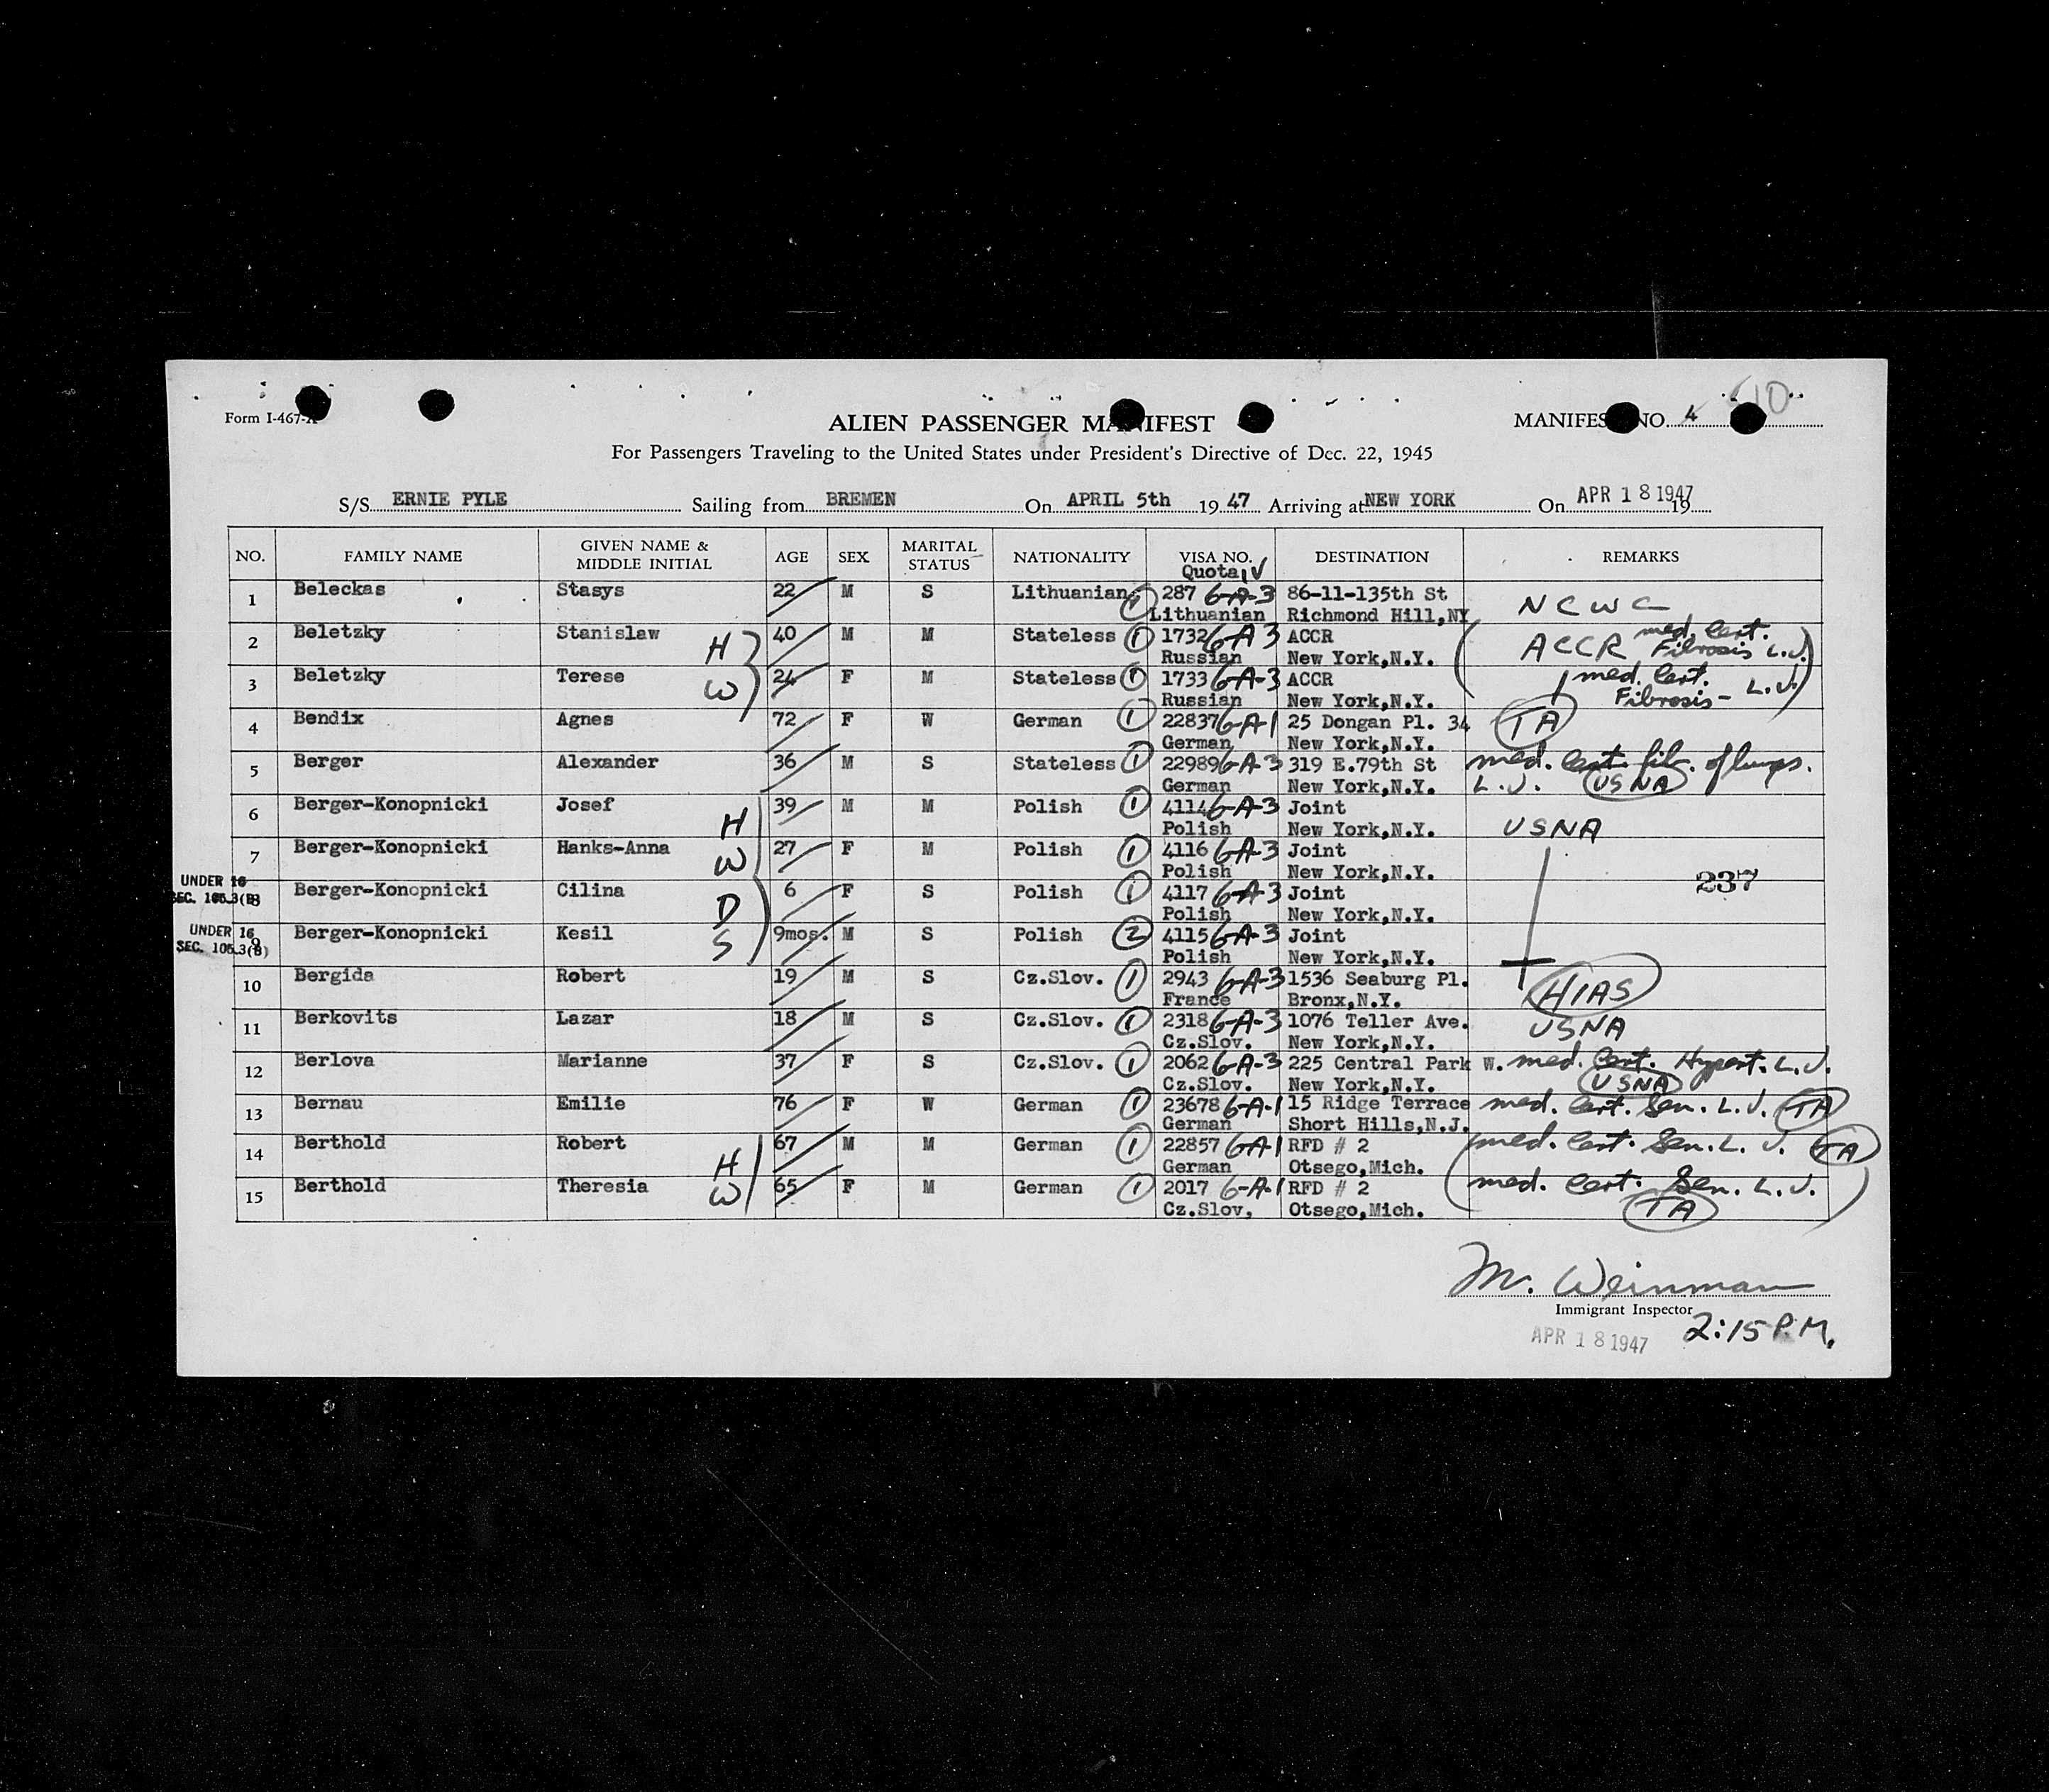 Form I-467-A
ALIEN PASSENGER MANIFEST
MANIFEST NO. 4
10
For Passengers Traveling to the United States under President's Directive of Dec. 22, 1945
S/S ERNIE PYLE Sailing from BREMEN On APRIL 5th 19 47 Arriving at NEW YORK On APR 18 1947 19
NO. FAMILY NAME GIVEN NAME & MIDDLE INITIAL AGE SEX MARITAL STATUS NATIONALITY VISA NO. Quota, V DESTINATION REMARKS
1 Beleckas Stasys 22 M S Lithuanian 1 287 6-A-3 86-11-135th St
Lithuanian Richmond Hill, NY NCWC
2 Beletzky Stanislaw H 40 M M Stateless 1 1732 6-A 3 ACCR ACCR med. Cert.
Russian New York,N.Y. Fibrosis L.J.
3 Beletzky Terese W 24 F M Stateless 1 1733 6-A-3 ACCR med. Cert.
Russian New York,N.Y. Fibrosis - L.J.
4 Bendix Agnes 72 F W German 1 22837 6-A-1 25 Dongan Pl. 34 TA
German New York,N.Y.
5 Berger Alexander 36 M S Stateless 1 22989 6-A-3 319 E.79th St med. Cert. fib. of lungs.
German New York,N.Y. L.J. USNA
6 Berger-Konopnicki Josef H 39 M M Polish 1 4114 6-A-3 Joint
Polish New York,N.Y. USNA
7 Berger-Konopnicki Hanks-Anna W 27 F M Polish 1 4116 6-A-3 Joint
Polish New York,N.Y.
237
UNDER 16
SEC. 105.3(B)
8 Berger-Konopnicki Cilina D 6 F S Polish 1 4117 6-A-3 Joint
Polish New York,N.Y.
UNDER 16
SEC. 105.3(B)
9 Berger-Konopnicki Kesil S 9mos. M S Polish 2 4115 6-A-3 Joint
Polish New York,N.Y.
10 Bergida Robert 19 M S Cz.Slov. 1 2943 6-A-3 1536 Seaburg Pl. HIAS
France Bronx,N.Y.
11 Berkovits Lazar 18 M S Cz.Slov. 1 2318 6-A-3 1076 Teller Ave. USNA
Cz.Slov. New York,N.Y.
12 Berlova Marianne 37 F S Cz.Slov. 1 2062 6-A-3 225 Central Park W. med. Cert. Hypert. L.J.
Cz.Slov. New York,N.Y. USNA
13 Bernau Emilie 76 F W German 1 23678 6-A-1 15 Ridge Terrace med. Cert. Sen. L.J. TA
German Short Hills,N.J.
14 Berthold Robert H 67 M M German 1 22857 6-A-1 RFD # 2 med. Cert. Sen. L.J. TA
German Otsego,Mich.
15 Berthold Theresia W 65 F M German 1 2017 6-A-1 RFD # 2 med. Cert. Sen. L.J.
Cz.Slov, Otsego,Mich. TA
M. Weinman
Immigrant Inspector
APR 18 1947 2:15 P.M.